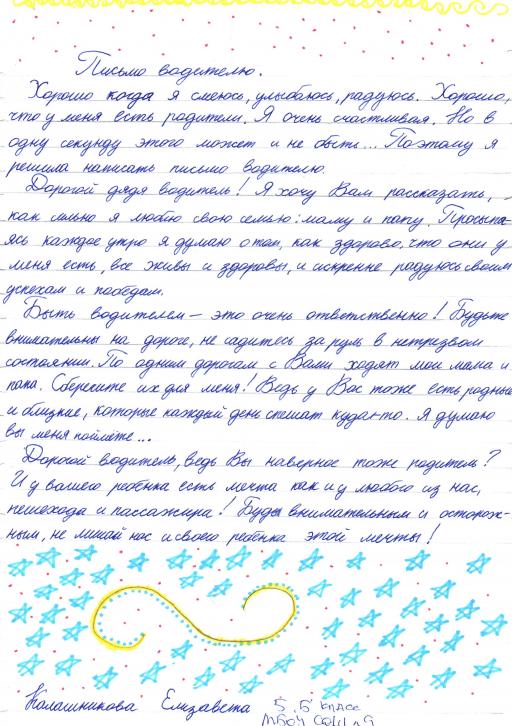 Письмо водителю.
Хорошо когда я смеюсь, улыбаюсь, радуюсь. Хорошо,
что у меня есть родители. Я очень счастливая. Но в
одну секунду этого может и не быть... Поэтому я
решила написать письмо водителю.
Дорогой дядя водитель! Я хочу Вам рассказать,
как сильно я люблю свою семью: маму и папу. Просыпа-
ясь каждое утро я думаю о том, как здорово, что они у
меня есть, все живы и здоровы, и искренне радуюсь своим
успехам и победам.
Быть водителем – это очень ответственно! Будьте
внимательны на дороге, не садитесь за руль в нетрезвом
состоянии. По одним дорогам с Вами ходят мои мама и
папа. Сберегите их для меня! Ведь у Вас тоже есть родные
и близкие, которые каждый день спешат куда-то. Я думаю
вы меня поймёте...
Дорогой водитель, ведь Вы наверное тоже родитель?
И у вашего ребёнка есть мечта как и у любого из нас,
пешехода и пассажира! Будь внимательным и осторож-
ным, не лишай нас и своего ребёнка этой мечты!
Калашникова Елизавета 5 "Б" класс
МБОУ СОШ №9